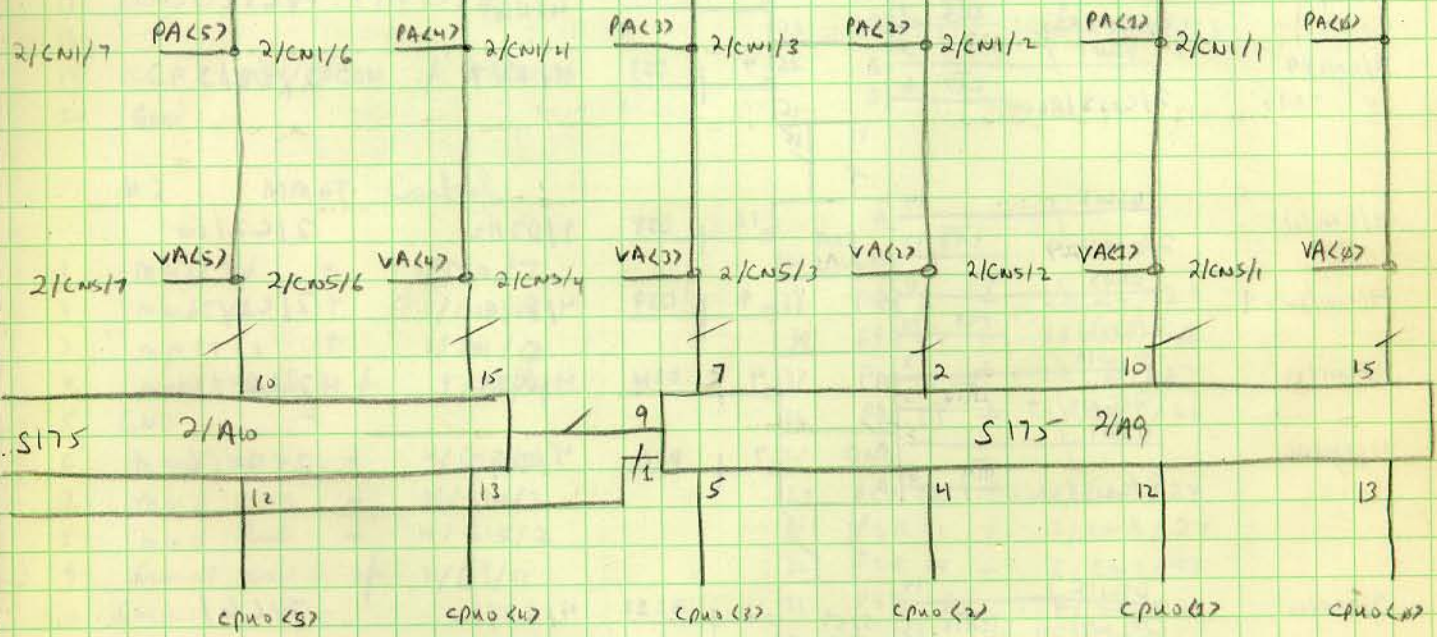 2/CN1/7 PA<5> 2/CN1/6 PA<4> 2/CN1/4 PA<3> 2/CN1/3 PA<2> 2/CN1/2 PA<1> 2/CN1/1 PA<0>
2/CN5/7 VA<5> 2/CN5/6 VA<4> 2/CN5/4 VA<3> 2/CN5/3 VA<2> 2/CN5/2 VA<1> 2/CN5/1 VA<0>
10 15 7 2 10 15
S175 2/A10 9 S175 2/A9
1
12 13 5 4 12 13
CPUO<5> CPUO<4> CPUO<3> CPUO<2> CPUO<1> CPUO<0>